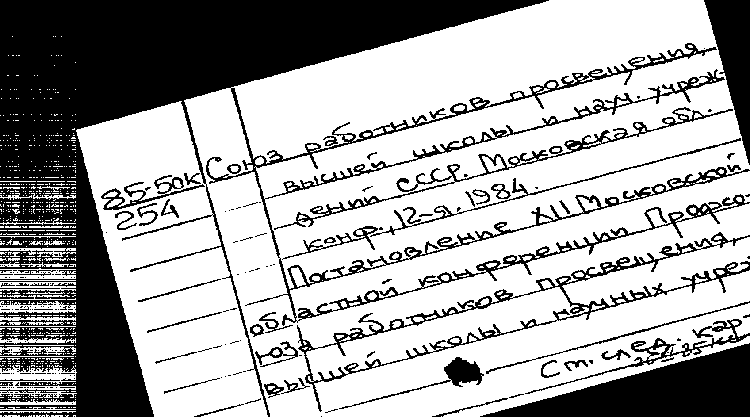 85-50к Союз работников просвещения,
254 высшей школы и науч. учреж-
дений СССР. Московская обл.
конф., 12-я. 1984.
Постановление XII Московской
областной конференции Профсо-
юза работников просвещения,
высшей школы и научных учреж-
См. след. кар-